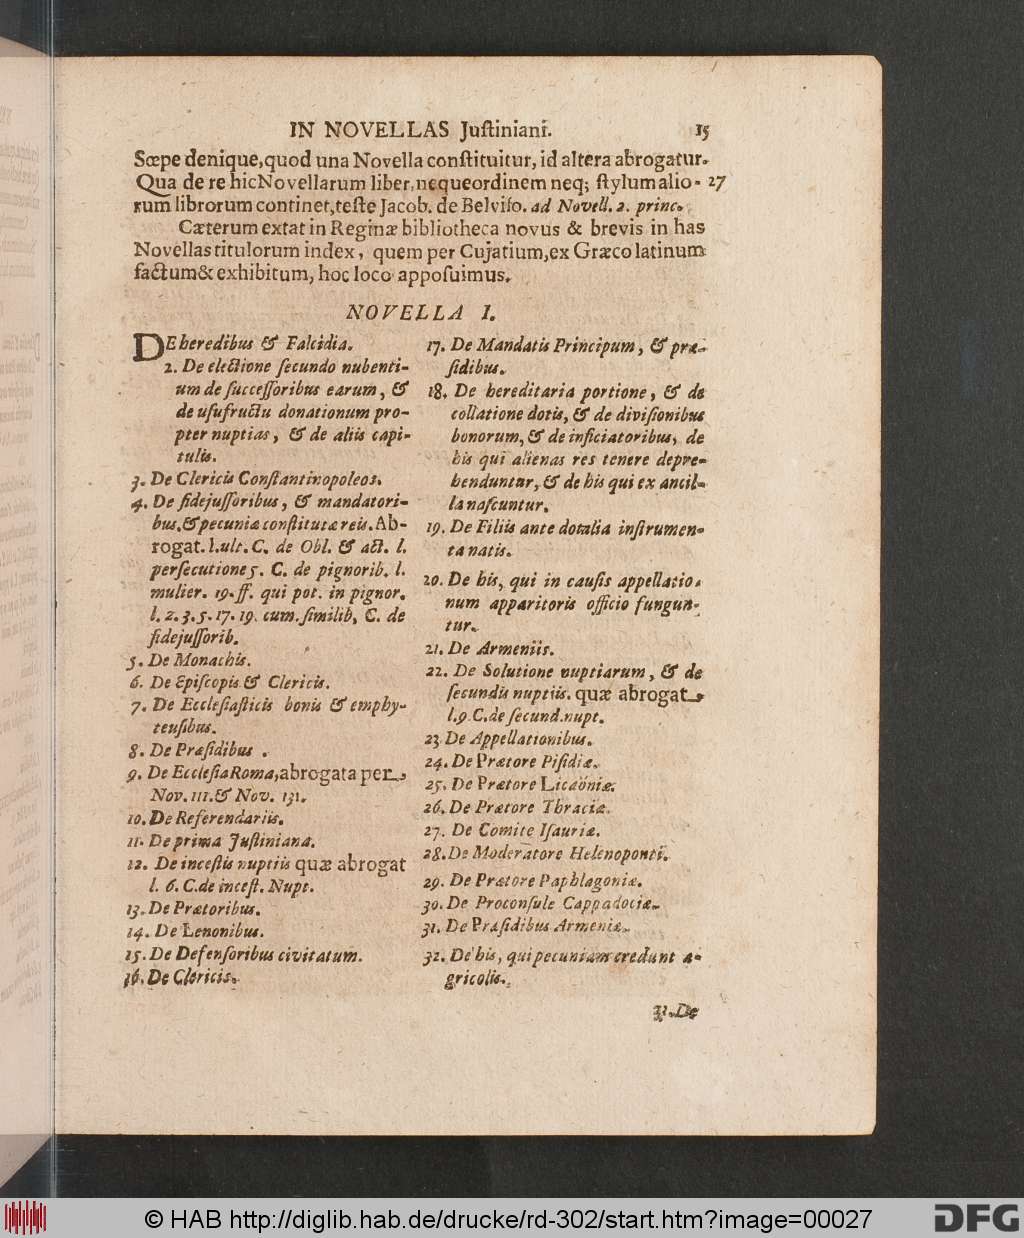 IN NOVELLAS Juſtiniani. 15
Sœpe denique, quod una Novella conſtituitur, id altera abrogatur.
Qua de re hic Novellarum liber, neque ordinem neq; ſtylum alio- 27
rum librorum continet, teſte Jacob. de Belviſo. ad Novell. 2. princ.
Cæterum extat in Reginæ bibliotheca novus & brevis in has
Novellas titulorum index, quem per Cujatium, ex Græco latinum
factum & exhibitum, hoc loco appoſuimus.
NOVELLA I.
DE heredibus & Falcidia.
2. De electione ſecundo nubenti-
um de ſucceſſoribus earum, &
de uſufructu donationum pro-
pter nuptias, & de aliis capi-
tulis.
3. De Clericis Conſtantinopoleos.
4. De fidejuſſoribus, & mandatori-
bus, & pecuniæ conſtitutæ reis. Ab-
rogat. l. ult. C. de Obl. & act. l.
perſecutione 5. C. de pignorib. l.
mulier. 19. ff. qui pot. in pignor.
l. 2. 3. 5. 17. 19. cum. ſimilib, C. de
fidejuſſorib.
5. De Monachis.
6. De Epiſcopis & Clericis.
7. De Eccleſiaſticis bonis & emphy-
teuſibus.
8. De Præſidibus .
9. De Eccleſia Roma, abrogata per
Nov. 111. & Nov. 131.
10. De Referendariis.
11. De prima Juſtiniana.
12. De inceſtis nuptiis quæ abrogat
l. 6. C. de inceſt. Nupt.
13. De Prætoribus.
14. De Lenonibus.
15. De Defenſoribus civitatum.
16. De Clericis.
17. De Mandatis Principum, & præ-
ſidibus.
18. De hereditaria portione, & de
collatione dotis, & de diviſionibus
bonorum, & de inficiatoribus, de
his qui alienas res tenere depre-
henduntur, & de his qui ex ancil-
la naſcuntur.
19. De Filiis ante dotalia inſtrumen-
ta natis.
20. De his, qui in cauſis appellatio-
num apparitoris officio fungun-
tur.
21. De Armeniis.
22. De Solutione nuptiarum, & de
ſecundis nuptiis. quæ abrogat
l. 9 C. de ſecund. nupt.
23 De Appellationibus.
24. De Prætore Piſidiæ.
25. De Prætore Licaoniæ.
26. De Prætore Thraciæ.
27. De Comite Iſauriæ.
28. De Moderatore Helenoponti.
29. De Prætore Paphlagoniæ.
30. De Proconſule Cappadociæ.
31. De Præſidibus Armeniæ.
32. De his, qui pecuniam credunt a-
gricolis.
33. De
© HAB http://diglib.hab.de/drucke/rd-302/start.htm?image=00027
DFG